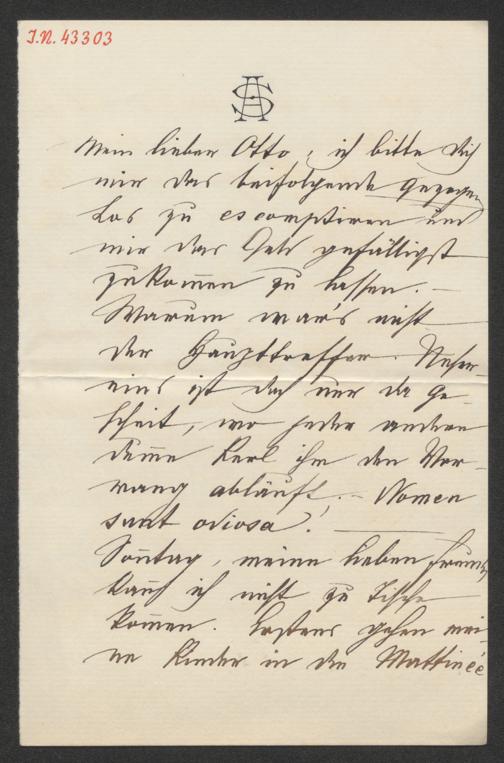 I.N. 43303
AS
Mein lieber Otto, ich bitte Dich
mir das beifolgende gezogene
Los zu escomptiren und
mir das Geld gefälligst
zukom̅en zu lassen. —
Warum war's nicht
der Haupttreffer. Unser-
eins ist doch nur da ge-
scheit, wo jeder andere
dum̅e Kerl ihm den Vor-
rang abläuft. — Nomen
sunt odiosa! —
Son̅tag, meine lieben Freunde
kan̅ ich nicht zu Tische
kom̅en. Erstens gehen mei-
ne Kinder in die Mattineé